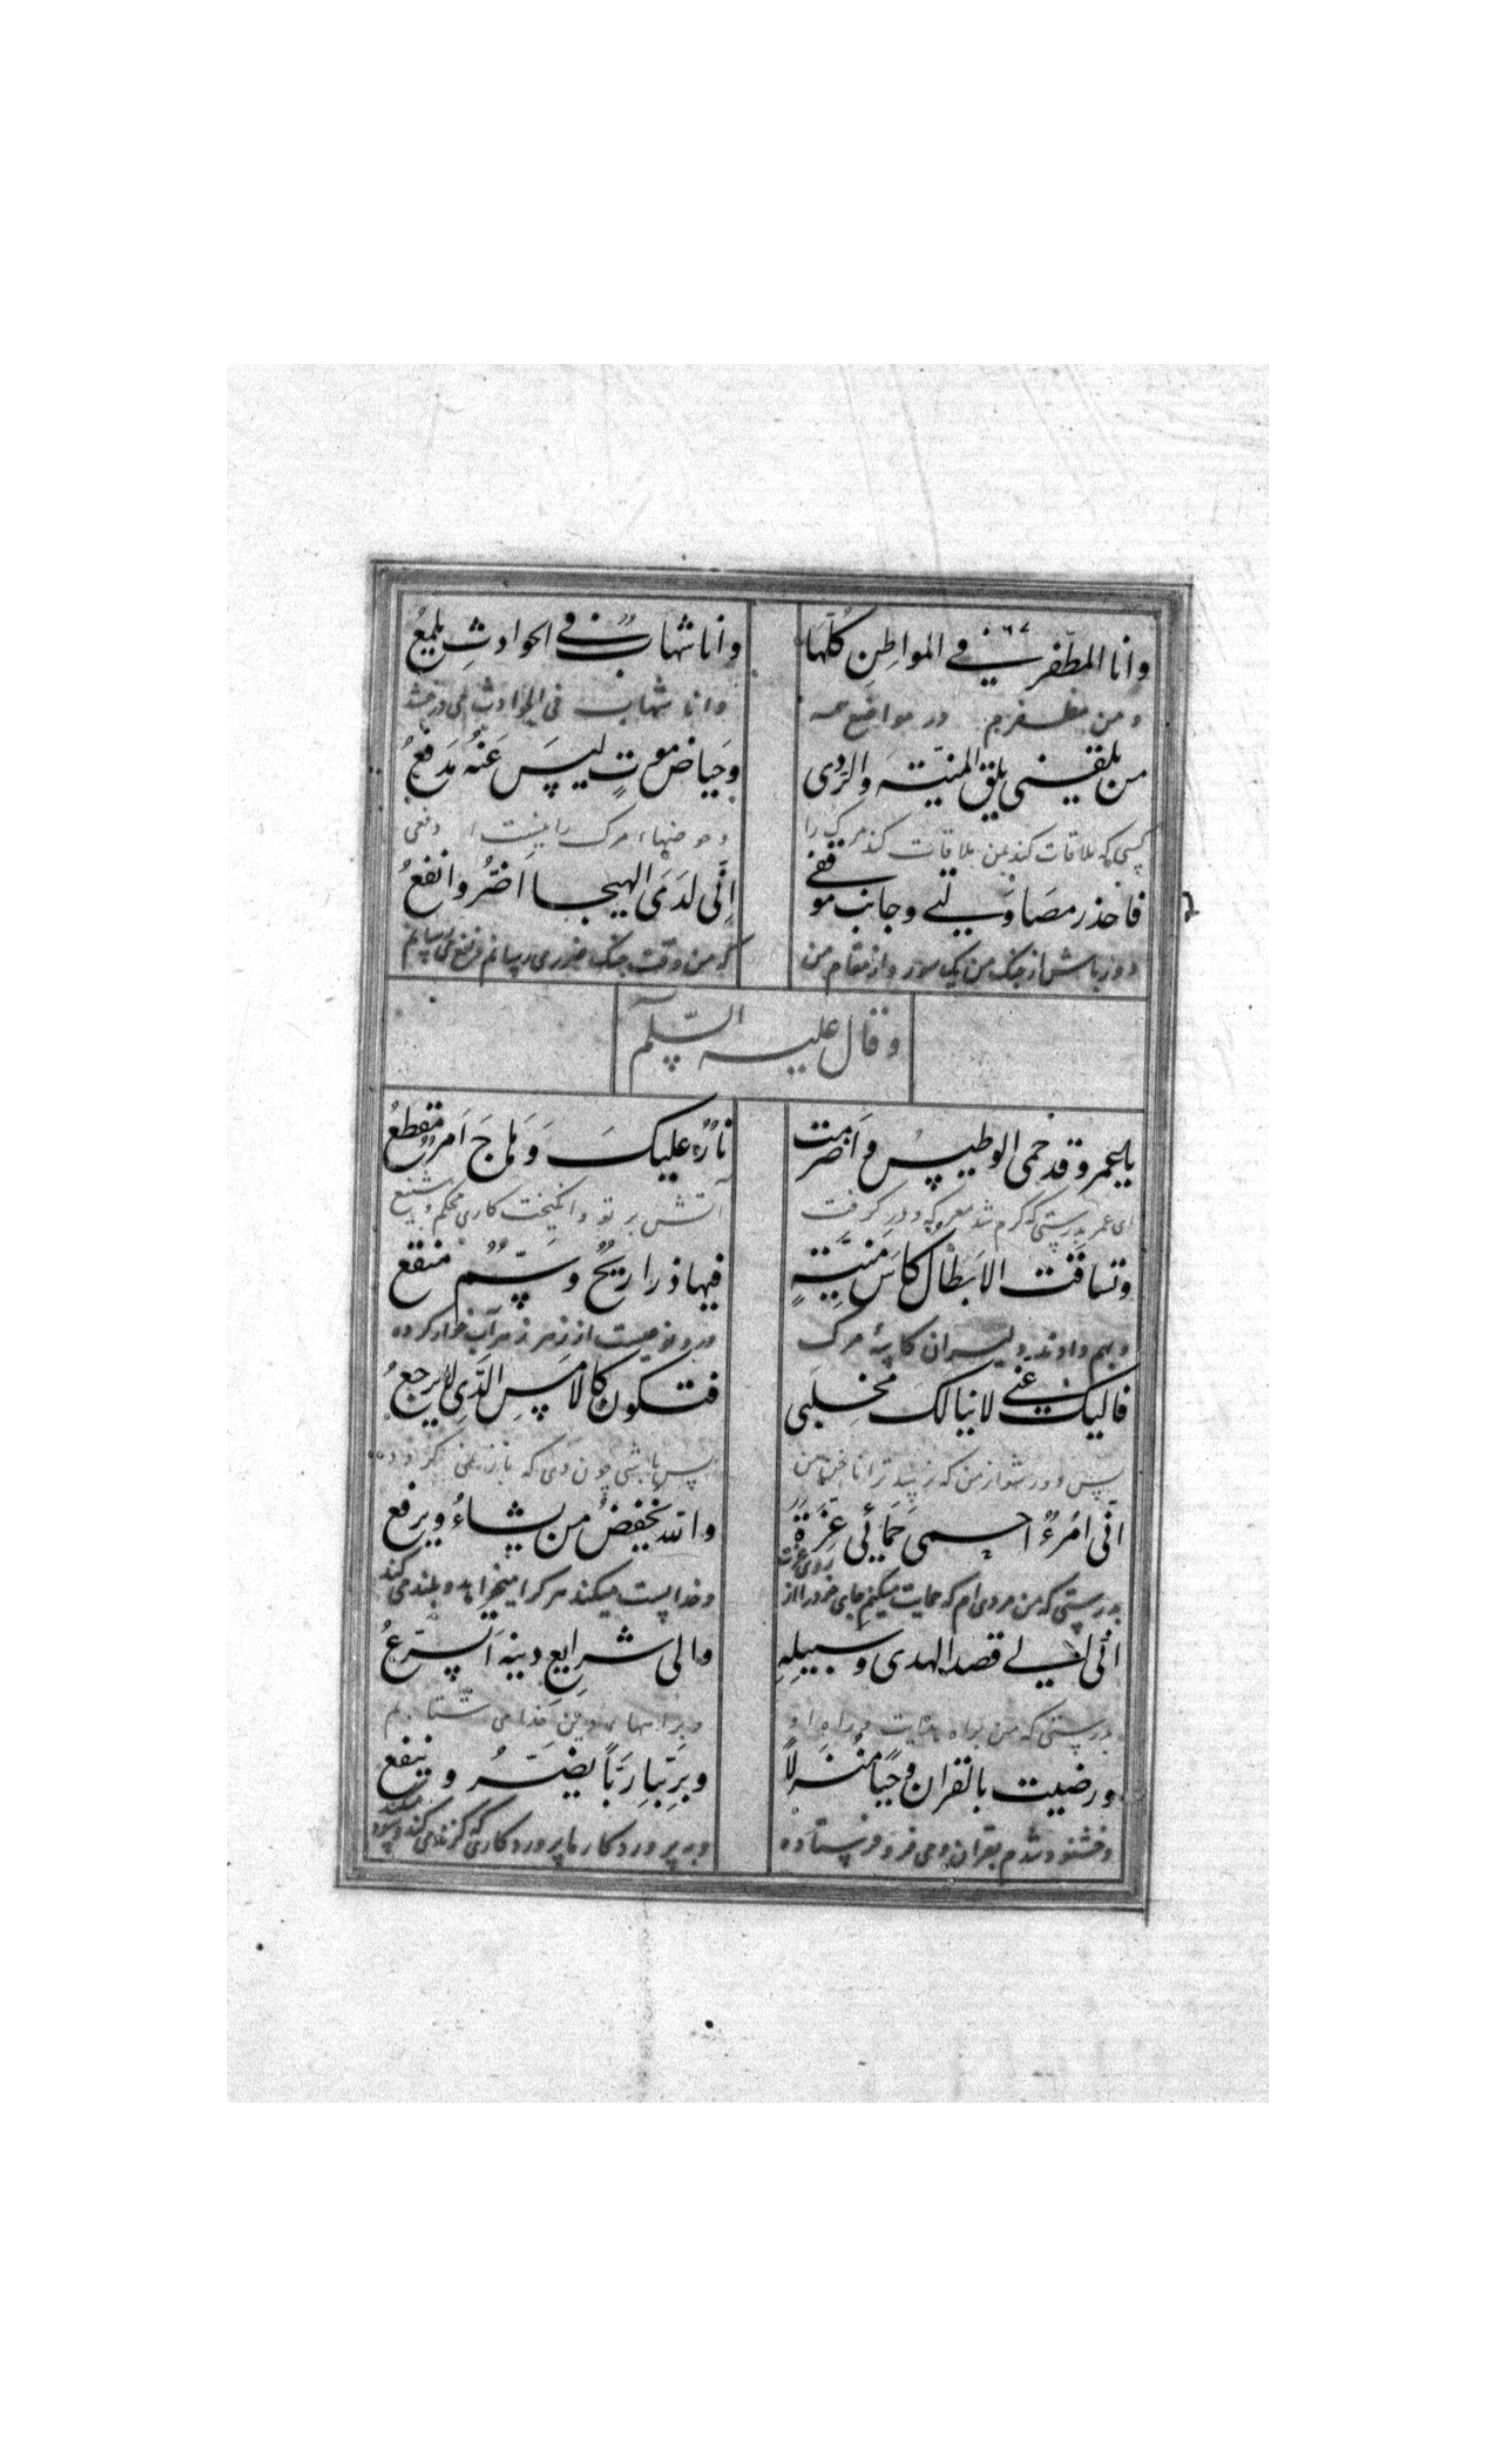 وانا المظفر فی المواطن کلّها
وانا شهابٌ فی الحوادثِ یلمعُ
و من مظفرم در مواضع همه
وانا شهاب فی الحوادث می درخشد
من یلقنی یلق المنیّة والرّدی
وحیاض موتٍ لیس عَنْهُ مَدفعُ
کسی که ملاقات کند بمن ملاقات کند مرک را
و حوضهاء مرک را نیست دفعی
فاحذر مصاولتی وجانب موقفی
اِنّی لدَی الهیجا اَضُرُّ وانفعُ
دور باش از جنک من یک سو رو از مقام من
که من وقت جنک ضرر می رسانم و نفع می رسانم
وقال علیه السّلم
یا عمرو قد حمی الوطیس واَضرمت
نارٌ علیکَ وَهاجَ اَمرٌ مقطعُ
ای عمر بدرستی که کرم شد معرکه و در کرفت
آتش بر تو وانکیخت کاری محکم و شنیع
وتساقت الاَبطال کاسَ مَنیّةٍ
فیها ذراریحٌ وسمٌّ منقع
و بهم دادند دلیران کاسهٔ مرک
درو نوعیست از زهر زهر آب خراد کرده
فالیک عنّی لا ینالک مخلبی
فتکون کالامسِ الّذی لا یرجعُ
پس دور شو از من که نرسد ترا ناخن من
پس باشی چون دی که باز نمی کردد
انّی امرءٌ احمی حمائی عزّة
والله یخفضُ من یشاءُ ویرفع
بدرستی که من مردی ام که حمایت میکنم جای خود را از روی عزت
وخدا پست میکند هر که را میخواهد و بلند می کند
انّی الی قصد الهدی وسبیلِهِ
والی شرایعِ دینه اَتسرّعُ
بدرستی که من براه هدایت و راه او
و براهها، دین خدا می شتابم
ورضیت بالقران وحیًا مُنزلًا
وبرَبّنا ربّاً یضرُّ وینفع
وخشنود شدم بقران وحی فرو فرستاده
وبه پروردکار ما پروردکاری که کزند می کند و سود میکند